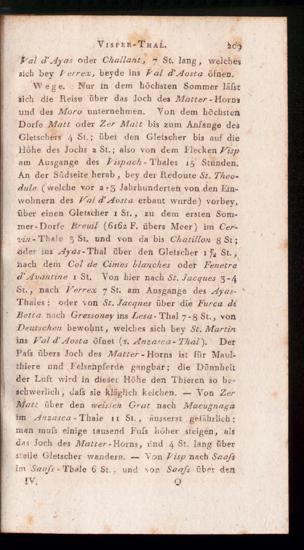 VISPER-THAL. 209
Val d'Ayas oder Challant, 7 St. lang, welches
sich bey Verrex, beyde ins Val d'Aosta öfnen.
Wege. Nur in dem höchsten Sommer läſst
sich die Reise über das Joch des Matter-Horns
und des Moro unternehmen. Von dem höchsten
Dorfe Matt oder Zer Matt bis zum Anfange des
Gletschers 4 St.; über den Gletscher bis auf die
Höhe des Jochs 2 St.; also von dem Flecken Visp
am Ausgange des Vispach-Thales 15 Stunden.
An der Südseite herab, bey der Redoute St. Theo-
dule (welche vor 2-3 Jahrhunderten von den Ein-
wohnern des Val d'Aosta erbaut wurde) vorbey,
über einen Gletscher 1 St., zu dem ersten Som-
mer-Dorfe Breuil (6162 F. übers Meer) im Cer-
vin-Thale 3 St. und von da bis Chatillon 8 St;
oder ins Ayas-Thal über den Gletscher 1½ St.,
nach dem Col de Cimes blanches oder Fenetre
d'Avantine 1 St. Von hier nach St. Jacques 3-4
St., nach Verrex 7 St. am Ausgange des Ayas-
Thales; oder von St. Jacques über die Furca di
Betta nach Gressoney ins Lesa-Thal 7-8 St., von
Deutschen bewohnt, welches sich bey St. Martin
ins Val d'Aosta öfnet (z. Anzasca-Thal). Der
Paſs übers Joch des Matter-Horns ist für Maul-
thiere und Felsenpferde gangbar; die Dünnheit
der Luft wird in dieser Höhe den Thieren so be-
schwerlich, daſs sie kläglich keichen. — Von Zer
Matt über den weissen Grat nach Macugnaga
im Anzasca-Thale 11 St., äusserst gefährlich;
man muſs einige tausend Fuſs höher steigen, als
das Joch des Matter-Horns, und 4 St. lang über
steile Gletscher wandern. — Von Visp nach Saaſs
im Saaſs-Thale 6 St., und von Saaſs über den
IV. O